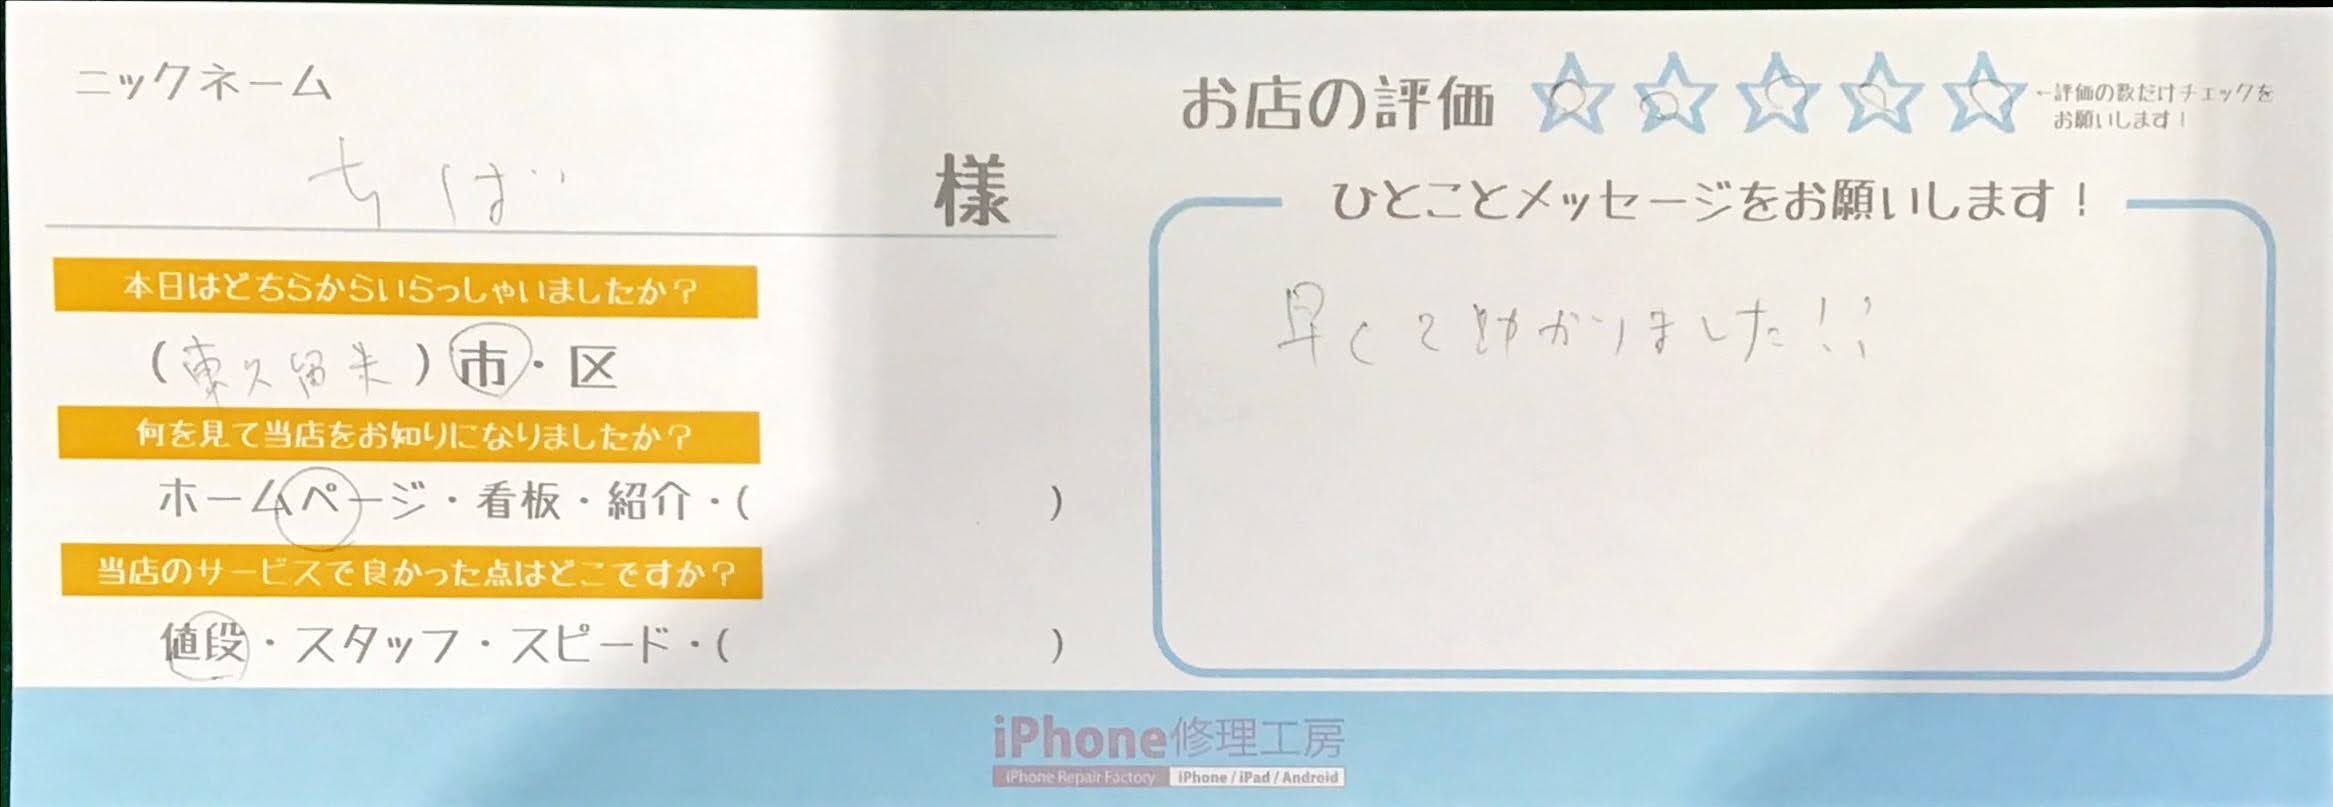 ニックネーム
ちば 様
本日はどちらからいらっしゃいましたか？
(東久留米)市・区
何を見て当店をお知りになりましたか？
ホームページ・看板・紹介・( )
当店のサービスで良かった点はどこですか？
値段・スタッフ・スピード・( )
お店の評価 ☆☆☆☆☆ ←評価の数だけチェックを
お願いします！
ひとことメッセージをお願いします！
早くて助かりました！！
iPhone修理工房
iPhone Repair Factory iPhone / iPad / Android